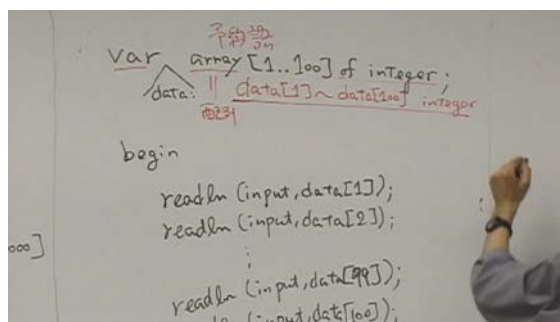 予約語
var array [1..100] of integer;
data: || data[1]~data[100] integer
配列
begin
readln (input,data[1]);
readln (input,data[2]);
⋮
000]
readln (input,data[99]);
readln (input,data[100]);